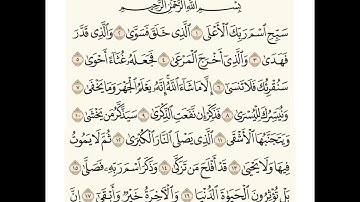 بِسْمِ ٱللَّهِ ٱلرَّحْمَٰنِ ٱلرَّحِيمِ
سَبِّحِ ٱسْمَ رَبِّكَ ٱلْأَعْلَى ١ ٱلَّذِى خَلَقَ فَسَوَّىٰ ٢ وَٱلَّذِى قَدَّرَ
فَهَدَىٰ ٣ وَٱلَّذِىٓ أَخْرَجَ ٱلْمَرْعَىٰ ٤ فَجَعَلَهُۥ غُثَآءً أَحْوَىٰ ٥
سَنُقْرِئُكَ فَلَا تَنسَىٰٓ ٦ إِلَّا مَا شَآءَ ٱللَّهُ إِنَّهُۥ يَعْلَمُ ٱلْجَهْرَ وَمَا يَخْفَىٰ ٧
وَنُيَسِّرُكَ لِلْيُسْرَىٰ ٨ فَذَكِّرْ إِن نَّفَعَتِ ٱلذِّكْرَىٰ ٩ سَيَذَّكَّرُ مَن يَخْشَىٰ ١٠
وَيَتَجَنَّبُهَا ٱلْأَشْقَى ١١ ٱلَّذِى يَصْلَى ٱلنَّارَ ٱلْكُبْرَىٰ ١٢ ثُمَّ لَا يَمُوتُ
فِيهَا وَلَا يَحْيَىٰ ١٣ قَدْ أَفْلَحَ مَن تَزَكَّىٰ ١٤ وَذَكَرَ ٱسْمَ رَبِّهِۦ فَصَلَّىٰ ١٥
بَلْ تُؤْثِرُونَ ٱلْحَيَوٰةَ ٱلدُّنْيَا ١٦ وَٱلْأَخِرَةُ خَيْرٌ وَأَبْقَىٰٓ ١٧ إِنَّ